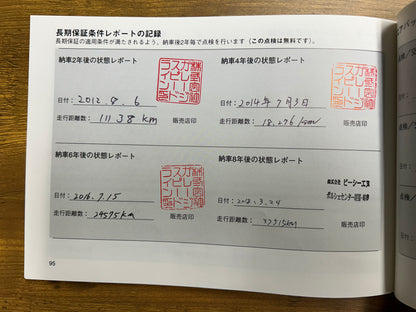 長期保証条件レポートの記録
長期保証の適用条件が満たされるよう、納車後2年毎で点検を行います（この点検は無料です）。
納車2年後の状態レポート
日付： 2012. 8. 6
走行距離数： 11138 km
販売店印
株式会社
ガレージ
スピード
ライン
納車4年後の状態レポート
日付： 2014年7月3日
走行距離数： 18.276/km
販売店印
株式会社
ガレージ
スピード
ライン
納車6年後の状態レポート
日付： 2016.7.15
走行距離数： 24575km
販売店印
株式会社
ガレージ
スピード
ライン
納車8年後の状態レポート
日付：
走行距離数：
販売店印
株式会社 ピーシー工房
95